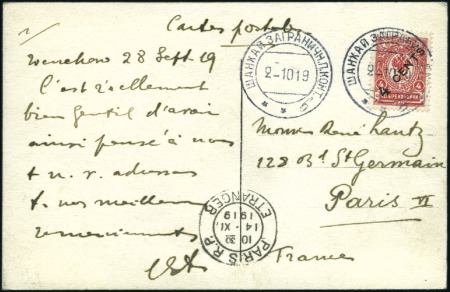 Cartes postales
Wenchow 28 Sept 19
C'est réellement
bien gentil d'avoir
ainsi pensé à nous
nos meilleurs
remerciements
ШАНХАЙ ЗАГРАНИЧН.П.КОНТ.
2-1019
ШАНХАЙ ЗАГРАНИЧ
2-10
4 CENTS
4
4
Monsr René
128 Bd St Germain
Paris VI
France
PARIS R.P.
ETRANGER
14-XI
1919